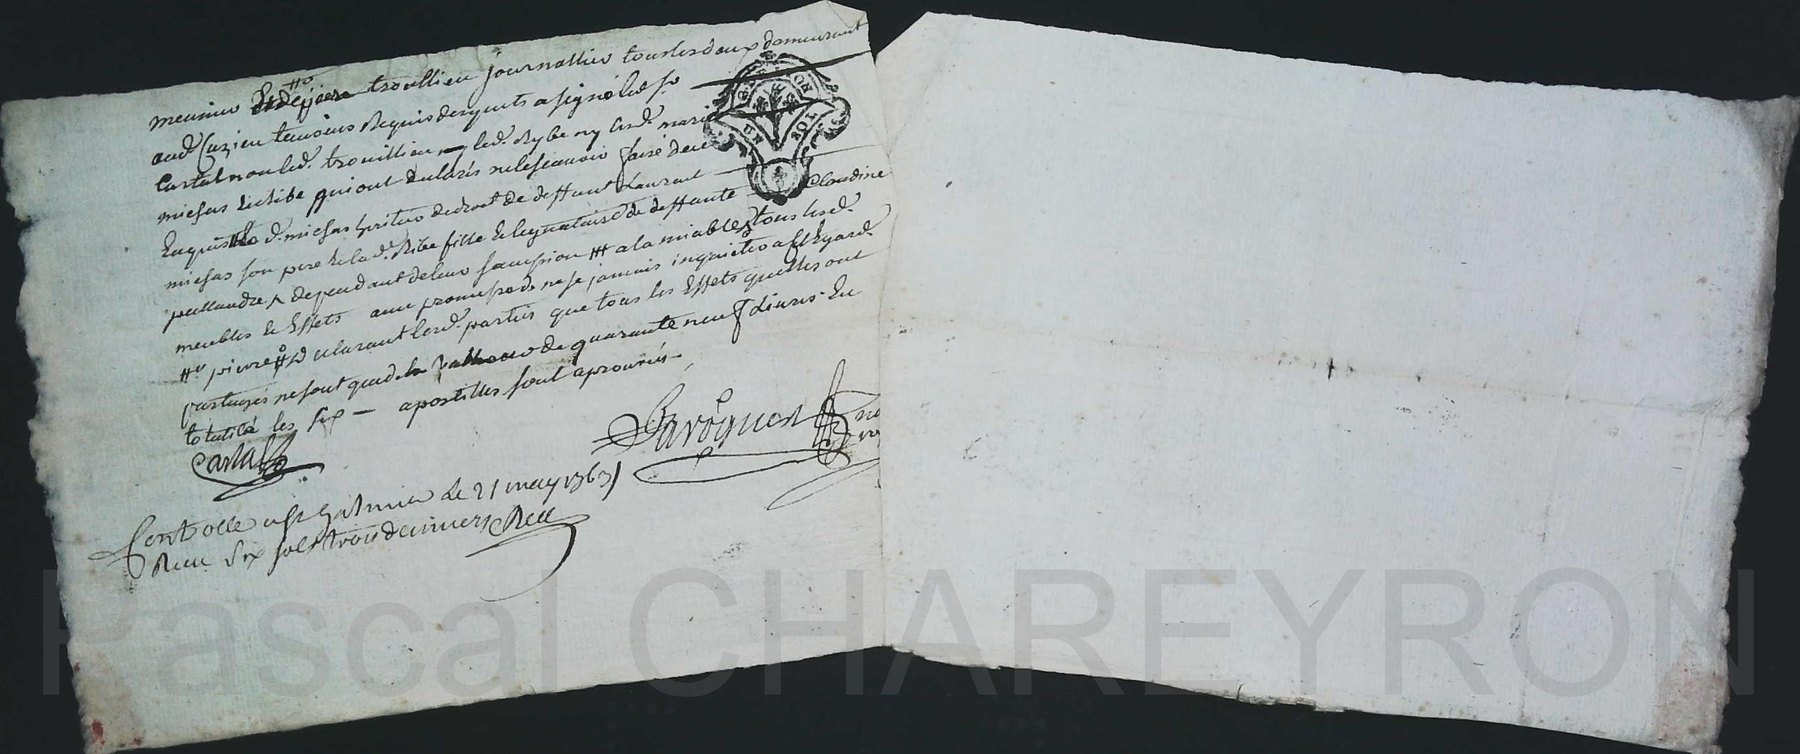 meunier et pierre trouillieu journallier tous les deux demeurant
aud. Cuzieu temoins Requis desquels a signé led. sr
Cartal non led. trouillieu ny led. Ribe ny lesd. marie
michas et Ribe qui ont declarés ne le scavoir faire de ce
Enquis d. michas heritier de droit de deffunt Laurent
michas son pere et lad. Ribe fille et legnataire de deffante Claudine
dependant de leur a la miable tous lesd.
meubles et Effets avec promesse de ne se jamais inquietter a cet Egard
pierre declarant lesd. parties que tous les Effets quelles ont
partagés ne sont que de la valleur de quarante neuf Livres En
totalité les six apostilles sont aprouvés
Cartal
Controllé a St Galmier le 21 may 1763
Reçu Six sols trois deniers
GEN LYON
UN SOL
Pascal CHAREYRON